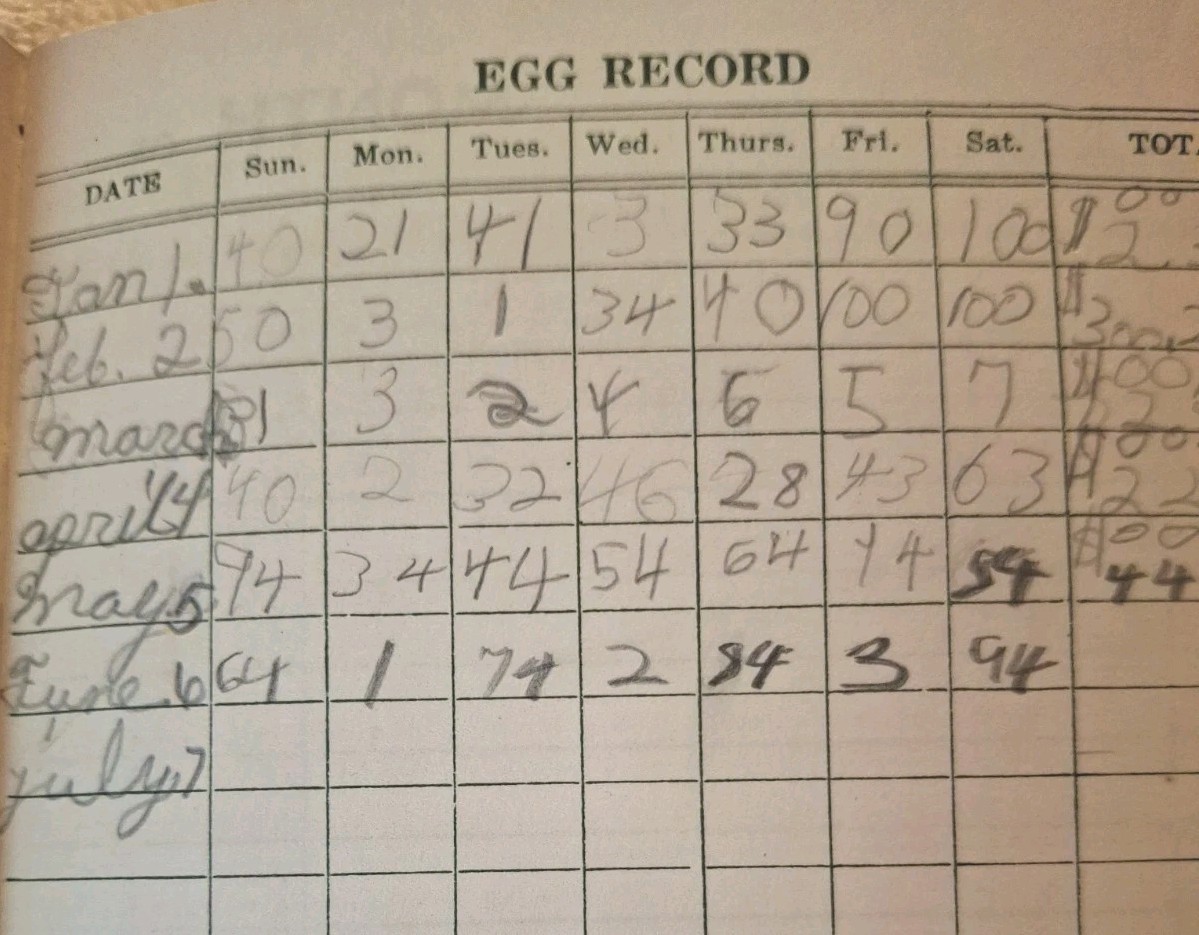 EGG RECORD
DATE Sun. Mon. Tues. Wed. Thurs. Fri. Sat. TOT
Jan 1. 40 21 41 3 33 90 100
Feb. 2 50 3 1 34 40 100 100
march 31 3 2 4 6 5 7
april 4 40 2 32 46 28 43 63
may.5 94 34 44 54 64 14 54
June.6 64 1 74 2 84 3 94
july,7